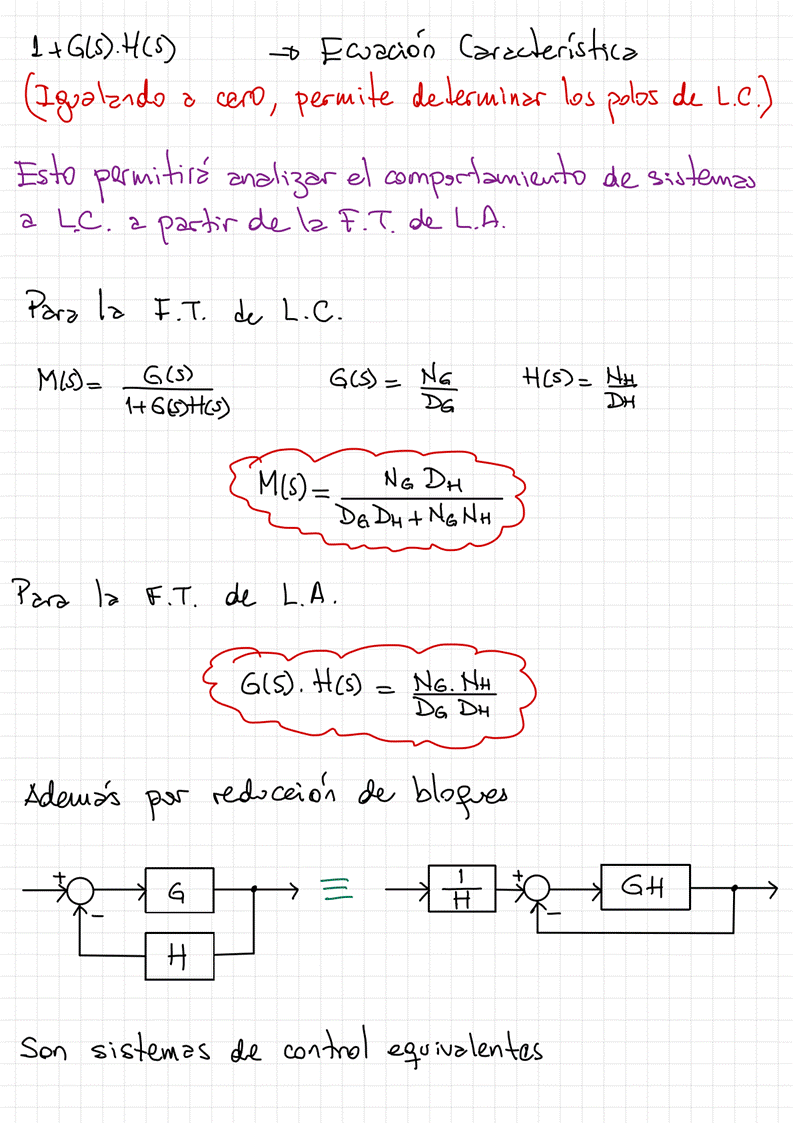 1+G(s).H(s) → Ecuación Característica
(Igualando a cero, permite determinar los polos de L.C.)
Esto permitirá analizar el comportamiento de sistemas
a L.C. a partir de la F.T. de L.A.
Para la F.T. de L.C.
M(s) = G(s) / 1+G(s)H(s) G(s) = NG / DG H(s) = NH / DH
M(s) = NG DH / DG DH + NG NH
Para la F.T. de L.A.
G(s). H(s) = NG. NH / DG DH
Además por reducción de bloques
+ − G H ≡ 1/H + − GH
Son sistemas de control equivalentes